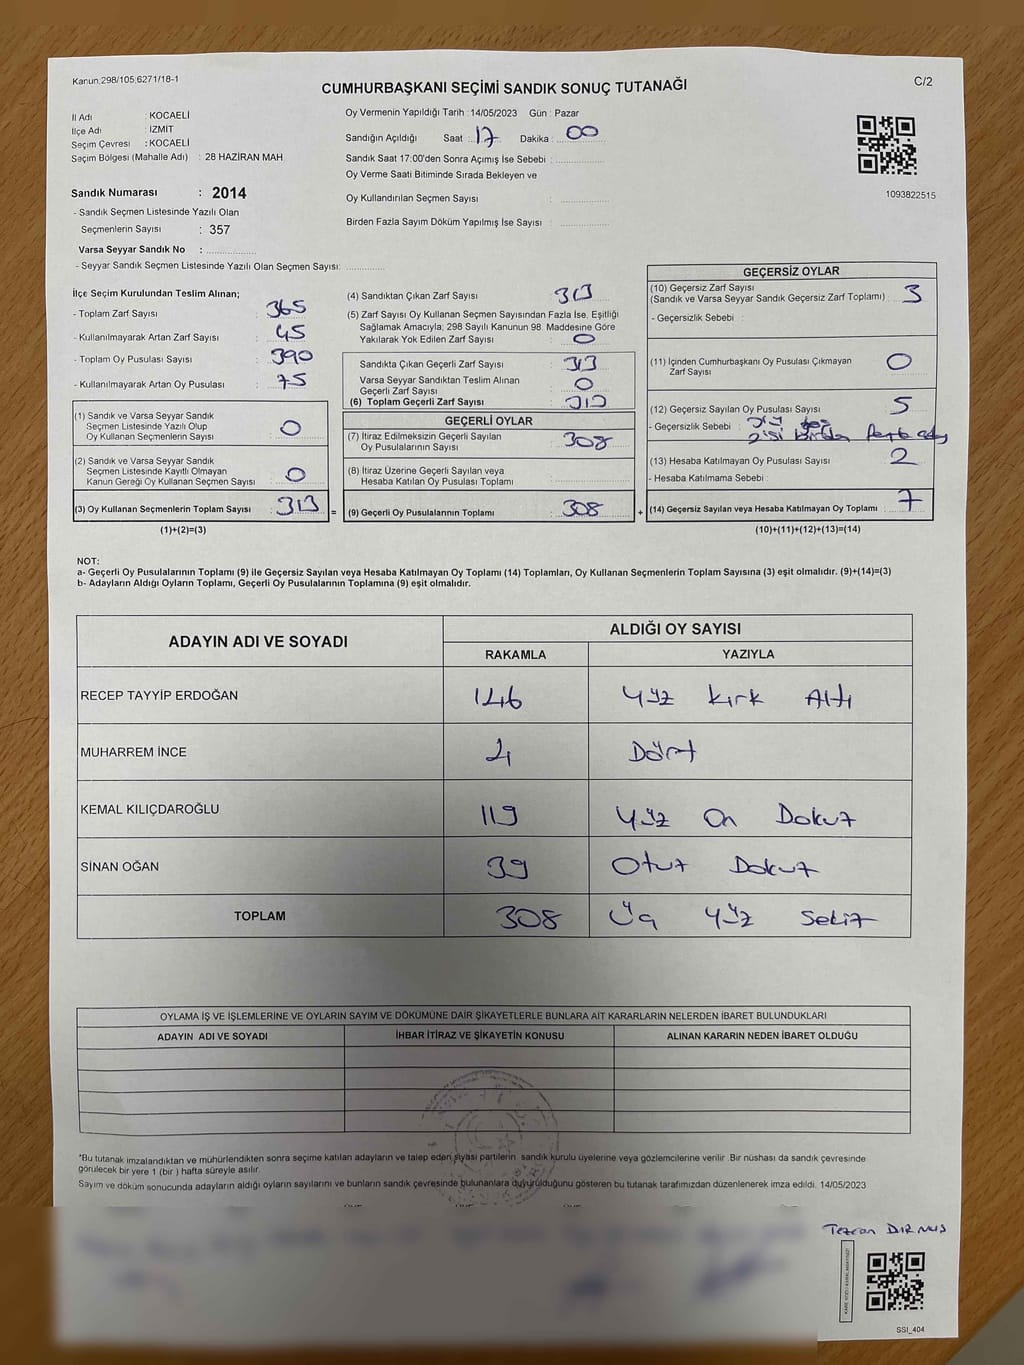 Kanun,298/105,6271/18-1
CUMHURBAŞKANI SEÇİMİ SANDIK SONUÇ TUTANAĞI
C/2
İl Adı : KOCAELİ
İlçe Adı : İZMİT
Seçim Çevresi : KOCAELİ
Seçim Bölgesi (Mahalle Adı) : 28 HAZİRAN MAH
Sandık Numarası : 2014
- Sandık Seçmen Listesinde Yazılı Olan
Seçmenlerin Sayısı : 357
Varsa Seyyar Sandık No :
- Seyyar Sandık Seçmen Listesinde Yazılı Olan Seçmen Sayısı:
Oy Vermenin Yapıldığı Tarih :14/05/2023 Gün : Pazar
Sandığın Açıldığı Saat : 17 Dakika : 00
Sandık Saat 17:00'den Sonra Açımış İse Sebebi :
Oy Verme Saati Bitiminde Sırada Bekleyen ve
Oy Kullandırılan Seçmen Sayısı :
Birden Fazla Sayım Döküm Yapılmış İse Sayısı :
1093822515
İlçe Seçim Kurulundan Teslim Alınan;
- Toplam Zarf Sayısı : 365
- Kullanılmayarak Artan Zarf Sayısı : 45
- Toplam Oy Pusulası Sayısı : 390
- Kullanılmayarak Artan Oy Pusulası : 75
(1) Sandık ve Varsa Seyyar Sandık
Seçmen Listesinde Yazılı Olup
Oy Kullanan Seçmenlerin Sayısı : 0
(2) Sandık ve Varsa Seyyar Sandık
Seçmen Listesinde Kayıtlı Olmayan
Kanun Gereği Oy Kullanan Seçmen Sayısı : 0
(3) Oy Kullanan Seçmenlerin Toplam Sayısı : 313
(1)+(2)=(3)
(4) Sandıktan Çıkan Zarf Sayısı : 313
(5) Zarf Sayısı Oy Kullanan Seçmen Sayısından Fazla İse, Eşitliği
Sağlamak Amacıyla; 298 Sayılı Kanunun 98. Maddesine Göre
Yakılarak Yok Edilen Zarf Sayısı : 0
Sandıkta Çıkan Geçerli Zarf Sayısı : 313
Varsa Seyyar Sandıktan Teslim Alınan
Geçerli Zarf Sayısı : 0
(6) Toplam Geçerli Zarf Sayısı : 313
GEÇERLİ OYLAR
(7) İtiraz Edilmeksizin Geçerli Sayılan
Oy Pusulasının Sayısı : 308
(8) İtiraz Üzerine Geçerli Sayılan veya
Hesaba Katılan Oy Pusulası Toplamı :
= (9) Geçerli Oy Pusulalarının Toplamı : 308 +
GEÇERSİZ OYLAR
(10) Geçersiz Zarf Sayısı
(Sandık ve Varsa Seyyar Sandık Geçersiz Zarf Toplamı) : 3
- Geçersizlik Sebebi :
(11) İçinden Cumhurbaşkanı Oy Pusulası Çıkmayan
Zarf Sayısı : 0
(12) Geçersiz Sayılan Oy Pusulası Sayısı : 5
- Geçersizlik Sebebi :
2'si Birden
(13) Hesaba Katılmayan Oy Pusulası Sayısı : 2
- Hesaba Katılmama Sebebi :
(14) Geçersiz Sayılan veya Hesaba Katılmayan Oy Toplamı : 7
(10)+(11)+(12)+(13)=(14)
NOT:
a- Geçerli Oy Pusulalarının Toplamı (9) ile Geçersiz Sayılan veya Hesaba Katılmayan Oy Toplamı (14) Toplamları, Oy Kullanan Seçmenlerin Toplam Sayısına (3) eşit olmalıdır. (9)+(14)=(3)
b- Adayların Aldığı Oyların Toplamı, Geçerli Oy Pusulalarının Toplamına (9) eşit olmalıdır.
ADAYIN ADI VE SOYADI ALDIĞI OY SAYISI
RAKAMLA YAZIYLA
RECEP TAYYİP ERDOĞAN 146 Yüz Kırk Altı
MUHARREM İNCE 4 Dört
KEMAL KILIÇDAROĞLU 119 Yüz On Dokuz
SİNAN OĞAN 39 Otuz Dokuz
TOPLAM 308 Üç Yüz Sekiz
OYLAMA İŞ VE İŞLEMLERİNE VE OYLARIN SAYIM VE DÖKÜMÜNE DAİR ŞİKAYETLERLE BUNLARA AİT KARARLARIN NELERDEN İBARET BULUNDUKLARI
ADAYIN ADI VE SOYADI İHBAR İTİRAZ VE ŞİKAYETİN KONUSU ALINAN KARARIN NEDEN İBARET OLDUĞU
*Bu tutanak imzalandıktan ve mühürlendikten sonra seçime katılan adayların ve talep eden siyasi partilerin sandık kurulu üyelerine veya gözlemcilerine verilir .Bir nüshası da sandık çevresinde
görülecek bir yere 1 (bir ) hafta süreyle asılır.
Sayım ve döküm sonucunda adayların aldığı oyların sayılarını ve bunların sandık çevresinde bulunanlara duyurulduğunu gösteren bu tutanak tarafımızdan düzenlenerek imza edildi. 14/05/2023
SSI_404